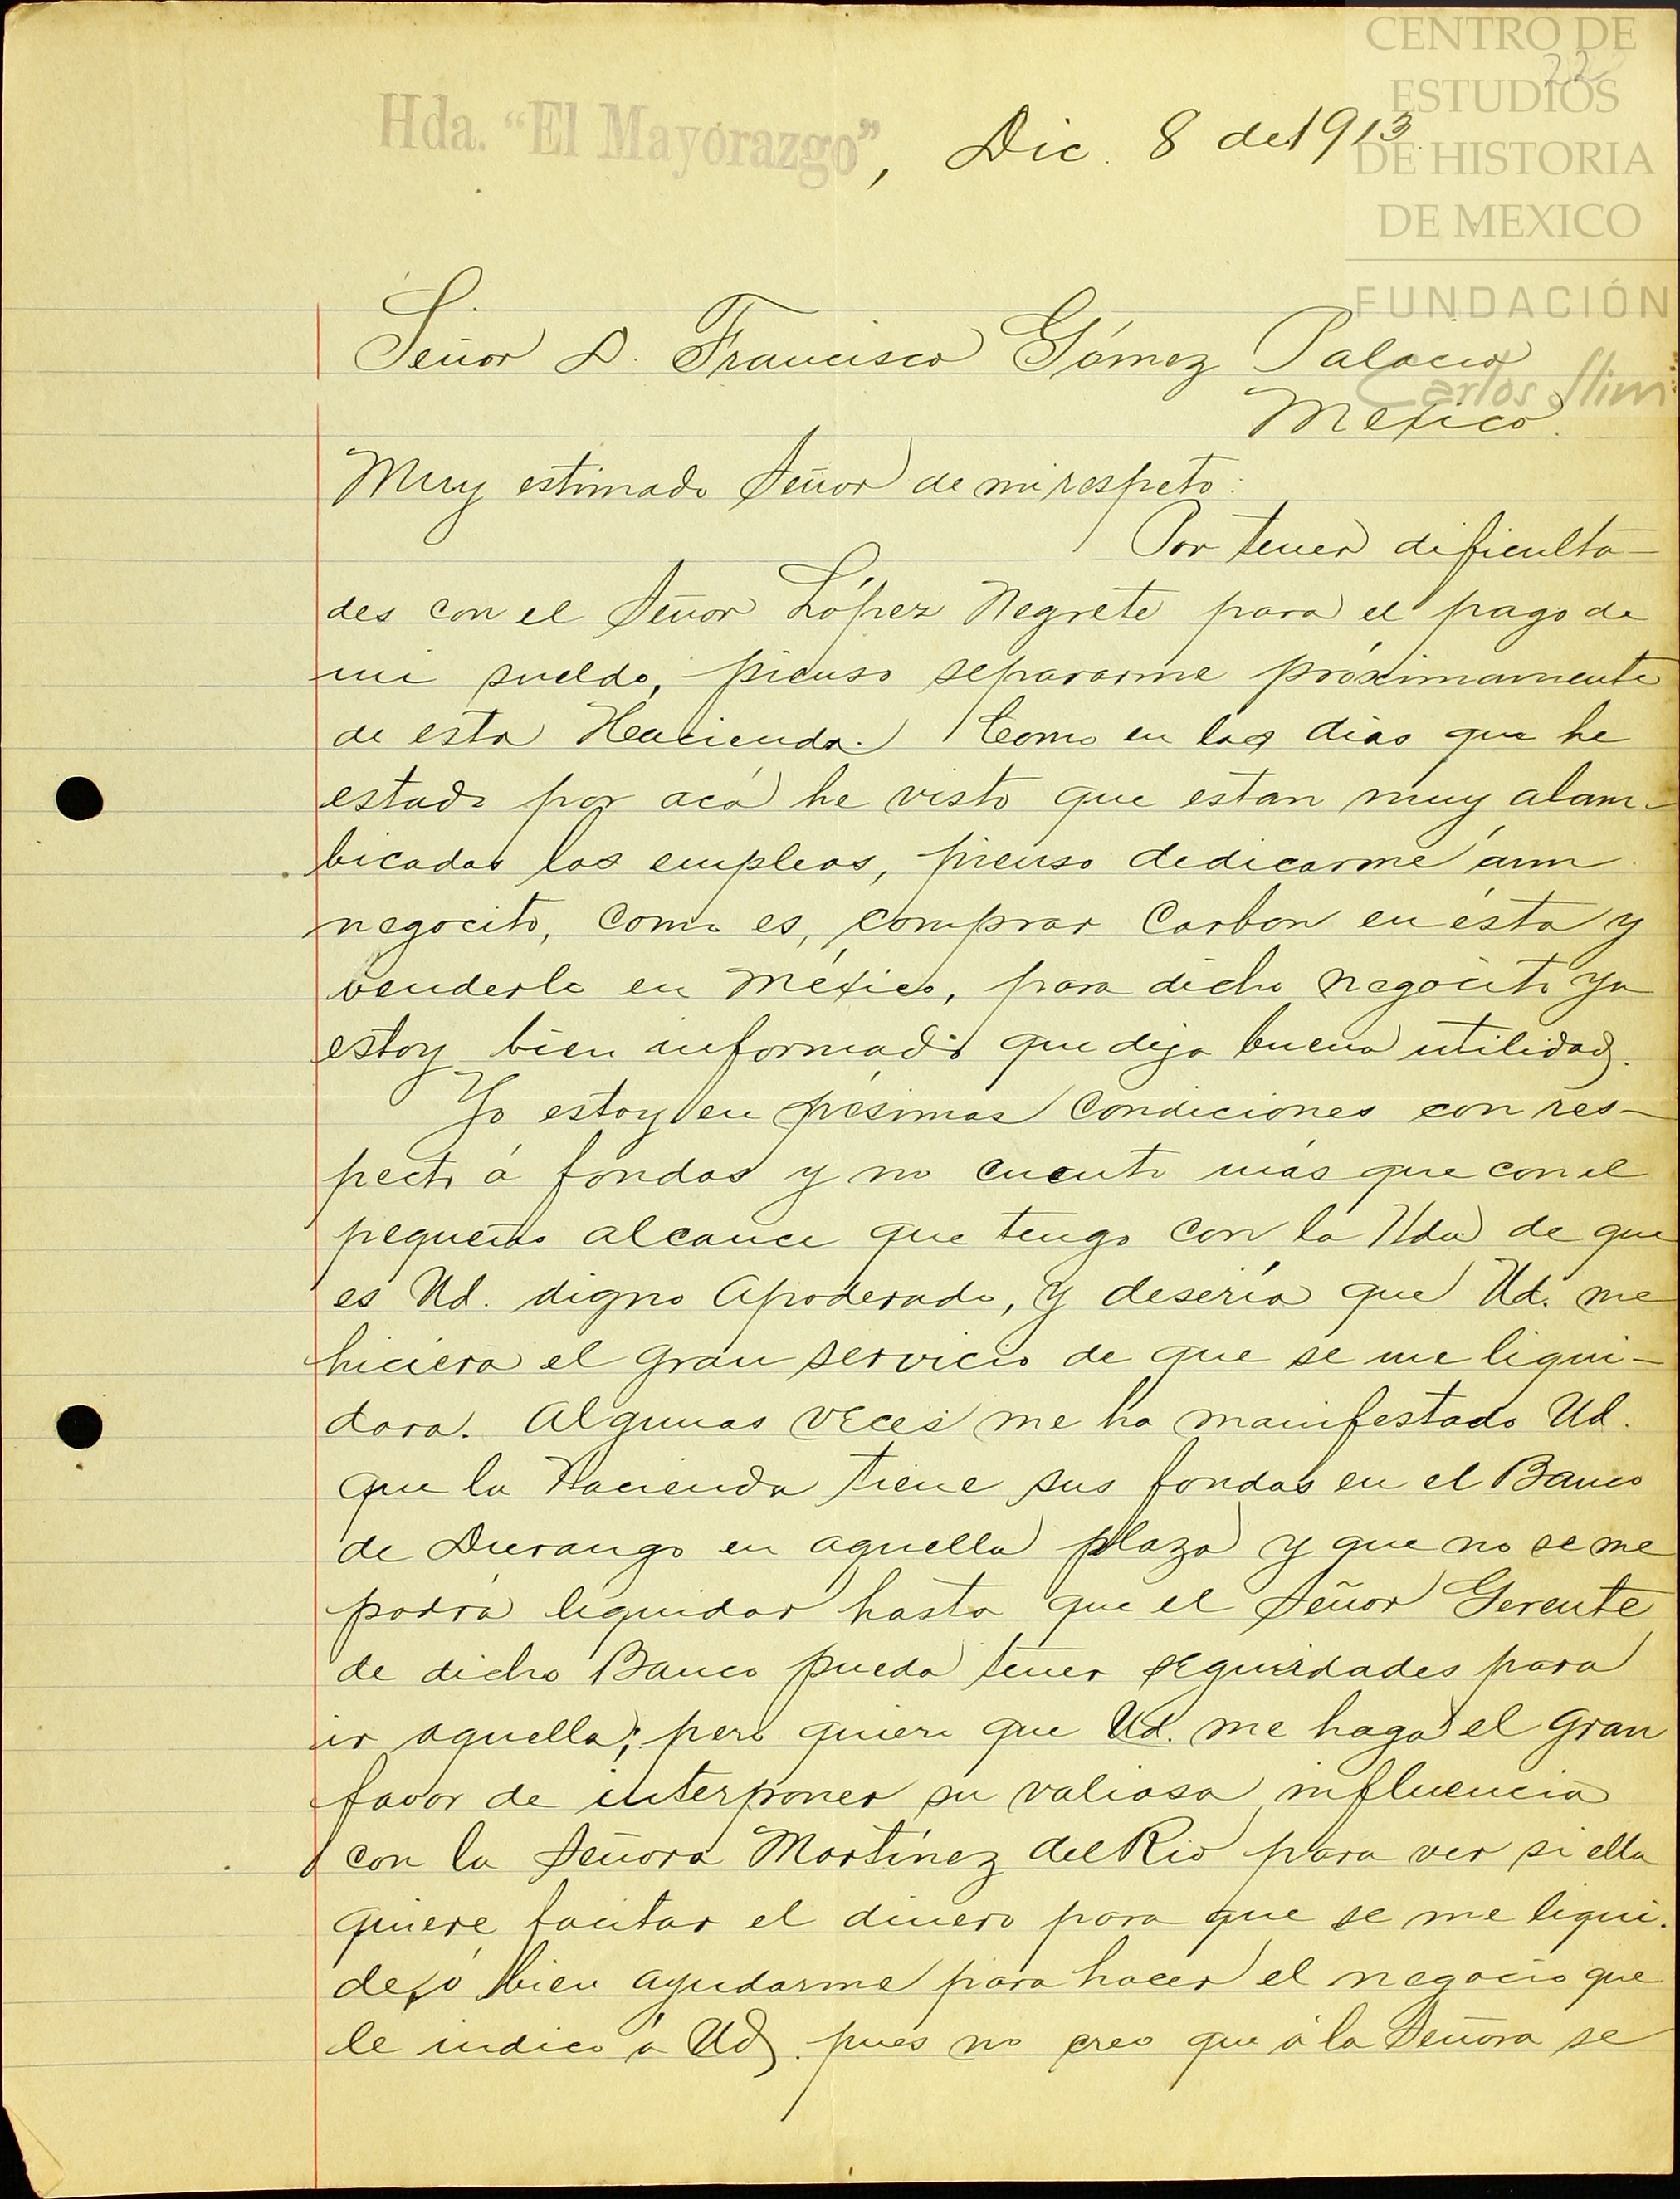 CENTRO DE
22
ESTUDIOS
Hda. "El Mayorazgo", Dic. 8 de 1913.
DE HISTORIA
DE MEXICO
FUNDACIÓN
Señor D. Francisco Gómez Palacio
Carlos Slim
México.
Muy estimado Señor de mi respeto:
Por tener dificulta-
des con el Señor López Negrete para el pago de
mi sueldo, pienso separarme próximamente
de esta Hacienda. Como en los dias que he
estado por acá he visto que estan muy alam-
bicados los empleos, pienso dedicarme á un
negocito, como es, comprar Carbon en ésta y
venderlo en México, para dicho negocito ya
estoy bien informado que deja buena utilidad.
Yo estoy en pésimas condiciones con res-
pecto á fondos y no cuento más que con el
pequeño alcance que tengo con la Hda de que
es Ud. digno Apoderado, y desería que Ud. me
hiciera el gran servicio de que se me liqui-
dara. Algunas veces me ha manifestado Ud.
que la Hacienda tiene sus fondos en el Banco
de Durango en aquella plaza y que no se me
podrá liquidar hasta que el Señor Gerente
de dicho Banco pueda tener seguridades para
ir aquella; pero quiero que Ud. me haga el gran
favor de interponer su valiosa influencia
con la Señora Martínez del Rio para ver si ella
quiere facitar el dinero para que se me liqui-
de, ó bien ayudarme para hacer el negocio que
le indico á Ud. pues no creo que á la Señora se